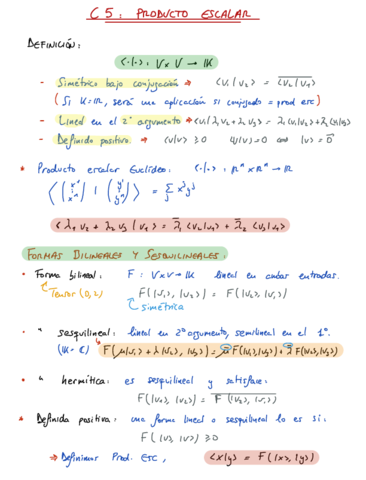 C5: PRODUCTO ESCALAR
DEFINICIÓN:
⟨·|·⟩: V×V → 𝕂
- Simétrico bajo conjugación ⇒ ⟨v₁|v₂⟩ = \overline{⟨v₂|v₁⟩}
(Si K=ℝ, será una aplicación sin conjugado = prod esc)
- Lineal en el 2º argumento ⇒ ⟨v₁|λ₁v₂+λ₂v₃⟩ = λ₁⟨v₁|v₂⟩+λ₂⟨v₁|v₃⟩
- Definido positivo. ⇒ ⟨v|v⟩ ≥ 0 ⟨v|v⟩=0 |v⟩=\vec{0}
* Producto escalar Euclídeo: ⟨·|·⟩: ℝⁿ×ℝⁿ → ℝ
⟨(x¹ ⋮ xⁿ)|(y¹ ⋮ yⁿ)⟩ = ∑ⱼ xʲyʲ
⟨λ₁v₂+λ₂v₃|v₁⟩ = \overline{λ}₁⟨v₂|v₁⟩+\overline{λ}₂⟨v₃|v₁⟩
FORMAS BILINEALES Y SESQUILINEALES:
• Forma bilineal: F: V×V→𝕂 lineal en ambas entradas.
Tensor (0,2) F(|v₁⟩,|v₂⟩) = F(|v₂⟩,|v₁⟩)
simétrica
• " sesquilineal: lineal en 2º argumento, semilineal en el 1º.
(𝕂=ℂ) F(μ|v₁⟩+λ|v₂⟩,|v₃⟩) = \overline{μ}F(|v₁⟩,|v₃⟩)+\overline{λ}F(|v₂⟩,|v₃⟩)
• " hermítica: es sesquilineal y satisface:
F(|v₁⟩,|v₂⟩) = \overline{F(|v₂⟩,|v₁⟩)}
* Definida positiva: una forma lineal o sesquilineal lo es si:
F(|v⟩,|v⟩) ≥ 0
⇒ Definimos Prod. Esc, ⟨x|y⟩ = F(|x⟩,|y⟩)